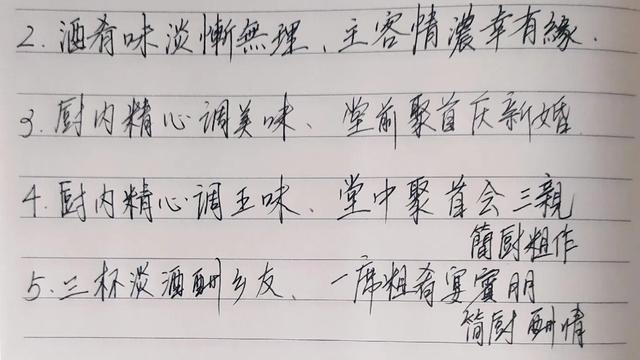 2. 酒肴味淡惭無理、主客情濃幸有緣.
3. 厨内精心调美味、堂前聚首庆新婚
4. 厨内精心调五味、堂中聚首会三親
簡厨粗作
5. 三杯淡酒酬乡友、一席粗肴宴賓朋
简厨酬情